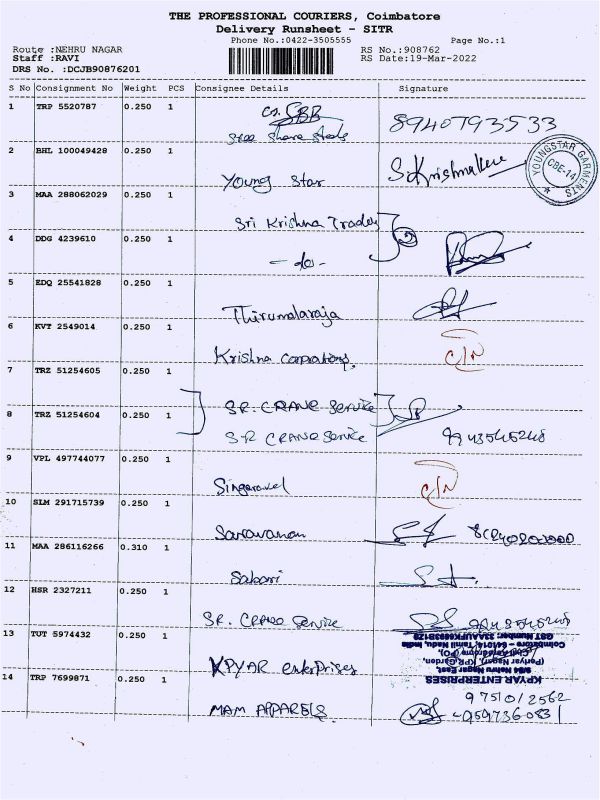 THE PROFESSIONAL COURIERS, Coimbatore
Delivery Runsheet - SITR
Phone No.:0422-3505555
Page No.:1
Route :NEHRU NAGAR
RS No.:908762
Staff :RAVI
RS Date:19-Mar-2022
DRS No. :DCJB90876201
S No Consignment No Weight PCS Consignee Details Signature
1 TRP 5520787 0.250 1 8940793533
Sree Share Steels
2 BHL 100049428 0.250 1 S. Krishna
Young Star
YOUNGSTAR GARMENTS CBE-14
3 MAA 288062029 0.250 1
Sri Krishna Traders
4 DDG 4239610 0.250 1
-do-
5 EDQ 25541828 0.250 1
Thirumalaraja
6 KVT 2549014 0.250 1 C/N
Krishna Corporations
7 TRZ 51254605 0.250 1
SR. CRANE Service
8 TRZ 51254604 0.250 1
SR CRANE Service
9 VPL 497744077 0.250 1 C/N
Singaravel
10 SLM 291715739 0.250 1
Saravanan
11 MAA 286116266 0.310 1
Sabari
12 HSR 2327211 0.250 1
SR. CRANE Service
13 TUT 5974432 0.250 1
KPYAR enterprises
KPYAR ENTERPRISES
9/54 Nehru Nagar East,
(Periyar Nagar), KPR Garden,
Coimbatore - 641014, Tamil Nadu, India
14 TRP 7699871 0.250 1 9751012562
MAM APPARELS